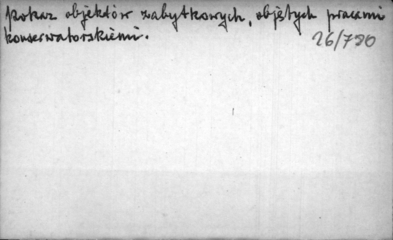 Pokaz objektów zabytkowych, objętych pracami
konserwatorskiemi.
26/790